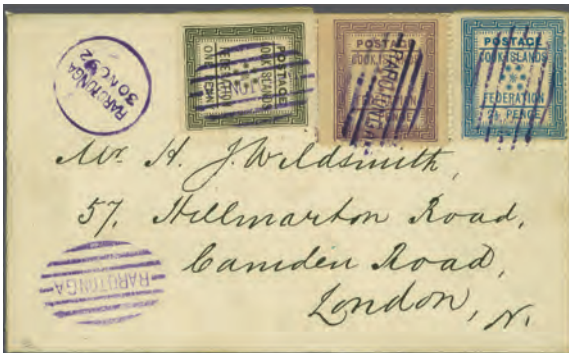 RAROTONGA
30 NO 92
POSTAGE
COOK ISLANDS
FEDERATION
ONE PENNY
POSTAGE
COOK ISLANDS
FEDERATION
PENCE
RAROTONGA
POSTAGE
COOK ISLANDS
FEDERATION
2½ PENCE
Mr. H. J. Wildsmith,
57, Hillmarton Road,
Camden Road,
London, N.
RAROTONGA